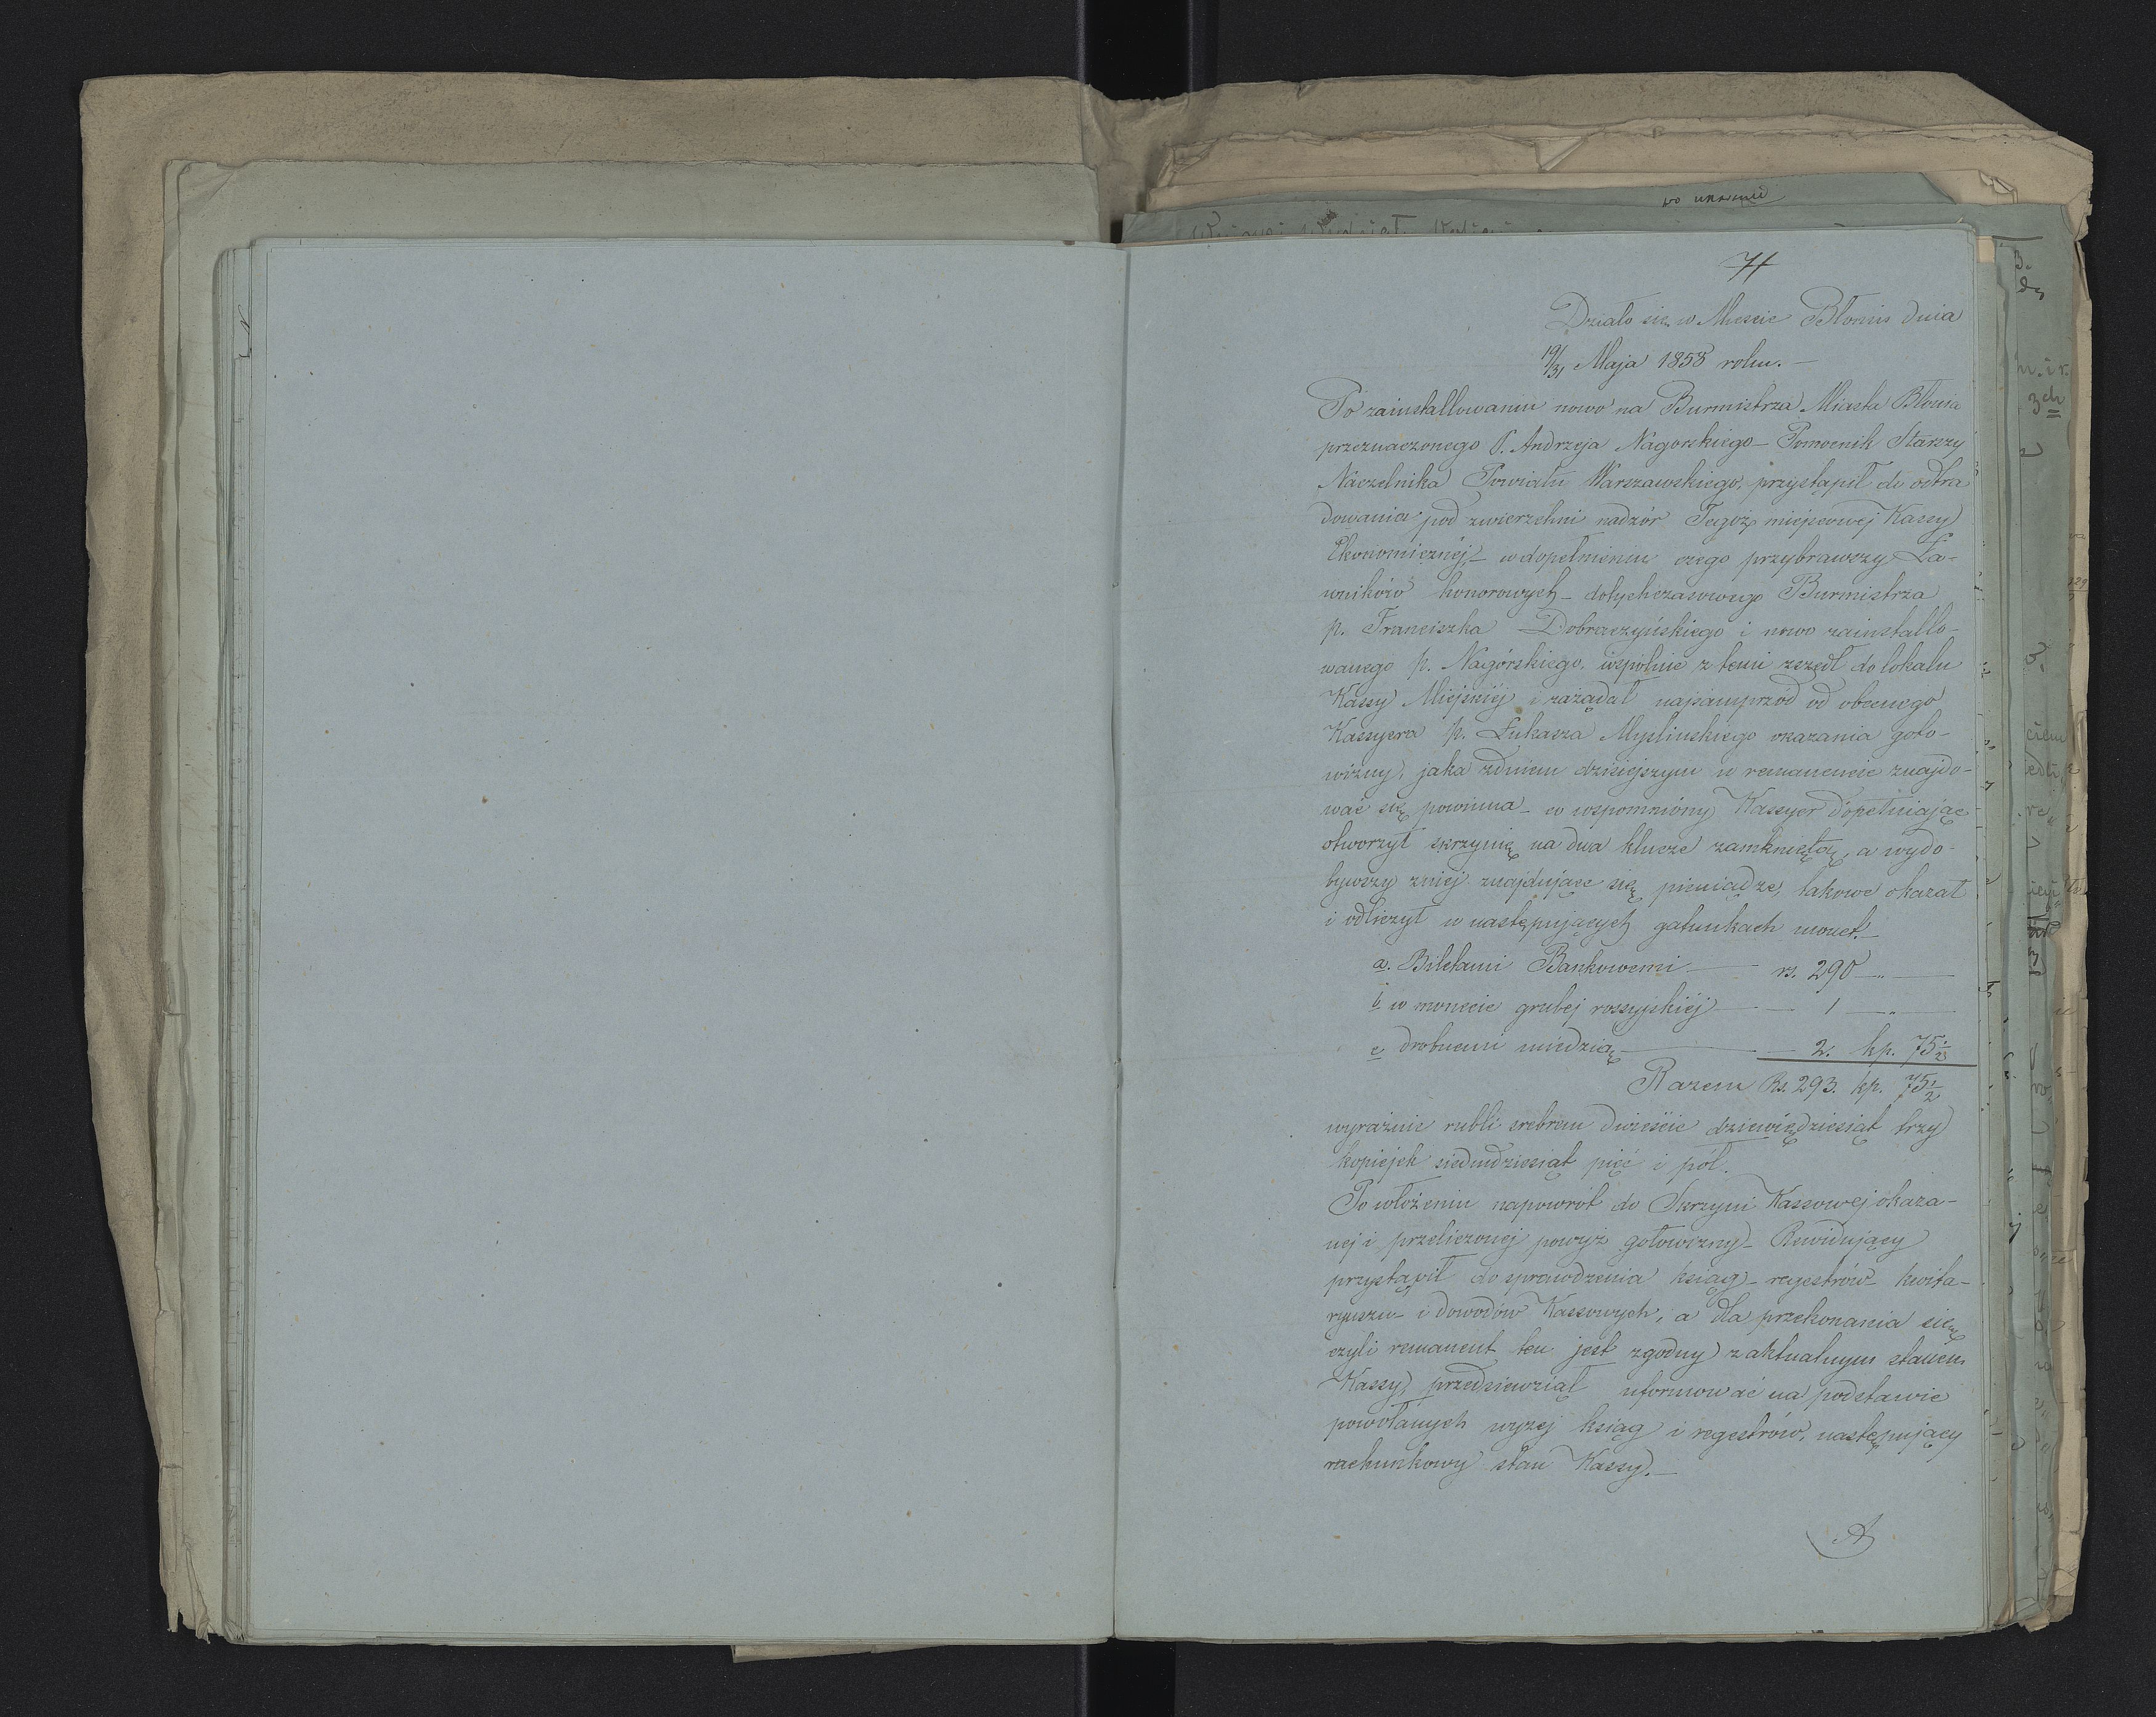 71
Działo się w Mieście Błoniu dnia
19/31 Maja 1858 roku. —
Po zainstallowaniu nowo na Burmistrza Miasta Błonia
przeznaczonego P. Andrzeja Nagorskiego — Pomocnik Starszy
Naczelnika Powiatu Warszawskiego, przystąpił do odtra
dowania pod zwierzchni nadzór Tegoż miejscowej Kassy
Ekonomicznéj, — w dopełnieniu czego przybrawszy Ła-
wników honorowych — dotychczasowego Burmistrza
p. Franciszka Dobraczyńskiego i nowo zainstallo-
wanego p. Nagórskiego, wspólnie z temi zszedł do lokalu
Kassy Miejskiéj i zażądał najsamprzód od obecnego
Kassyera p. Łukasza Myslinskiego okazania goto-
wizny, jaka z dniem dzisiejszym w remanencie znajdo-
wać się powinna — co wspomniony Kassyer dopełniając
otworzył skrzynię na dwa klucze zamkniętą, a wydo-
bywszy z niej znajdujące się pieniądze, takowe okazał
i odliczył w następujących gatunkach monet. —
a. Biletami Bankowemi — rs. 290 — „ —
b w monecie grubej rossyjskiéj — 1 — „ —
c drobnemi miedzią — 2. kp. 75 1/2
Razem Rs. 293. kp. 75 1/2
wyraźnie rubli srebrem dwieście dziewięćdziesiąt trzy
kopiejek siedmdziesiąt pięć i pół.
Po włożeniu napowrót do Skrzyni Kassowej okaza-
nej i przeliczonej powyż gotowizny — Rewidujący
przystąpił do sprawdzenia ksiąg — regestrów — kwita-
ryuszu — i dowodów Kassowych, a dla przekonania się
czyli remanent ten jest zgodny z aktualnym stanem
Kassy, przedsiewziął uformować na podstawie
powołanych wyzej ksiąg i regestrów, następujący
rachunkowy stan Kassy. —